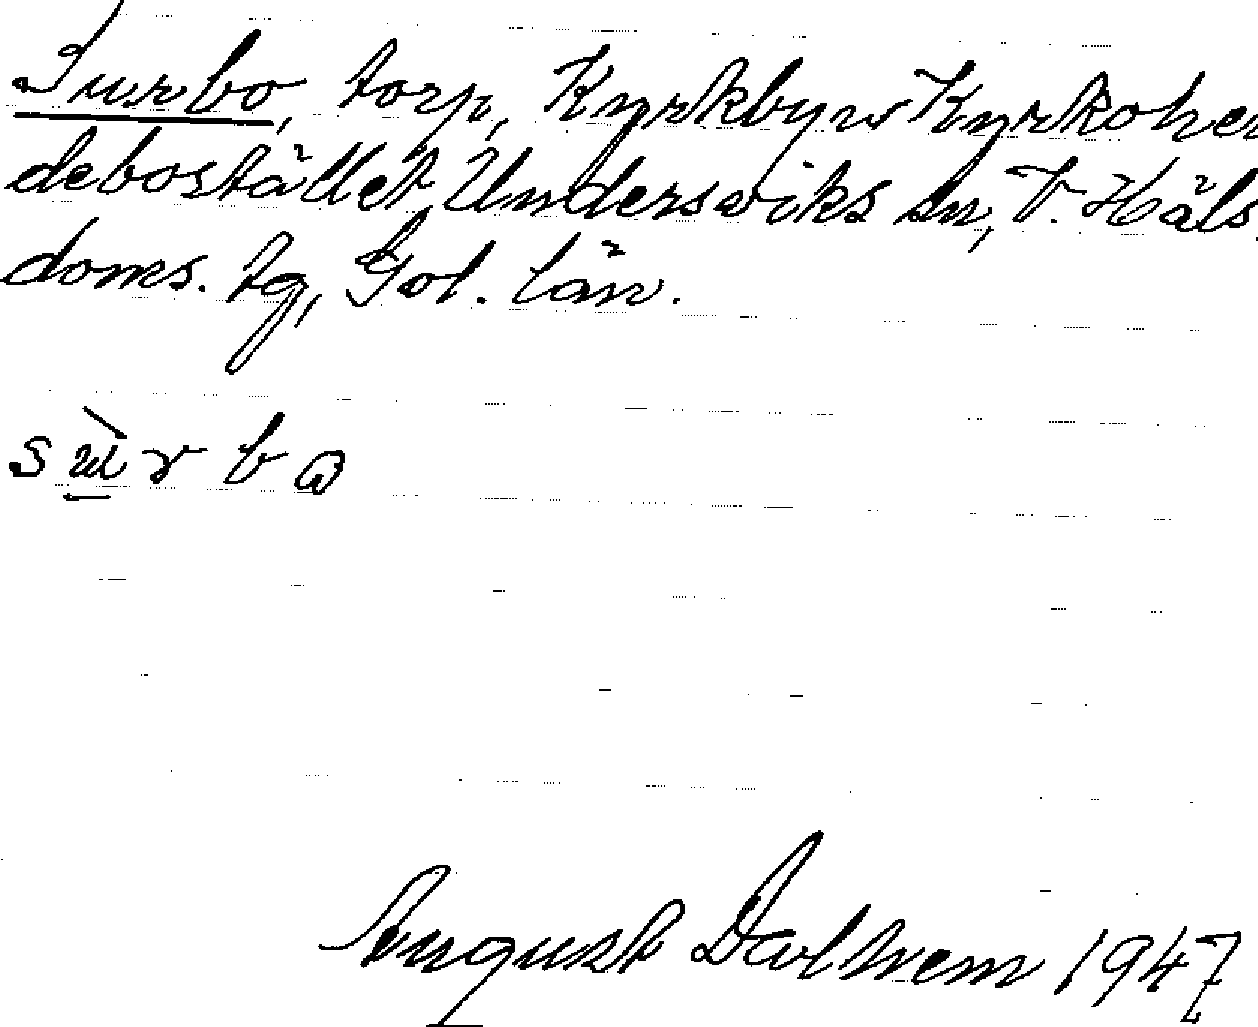 Surbo, torp, Kyrkbyn Kyrkoher
debostället, Undersviks sn, V. Häls.
doms. tg, Gol. län.
s ù̱ r b ω
August Dalhem 1947